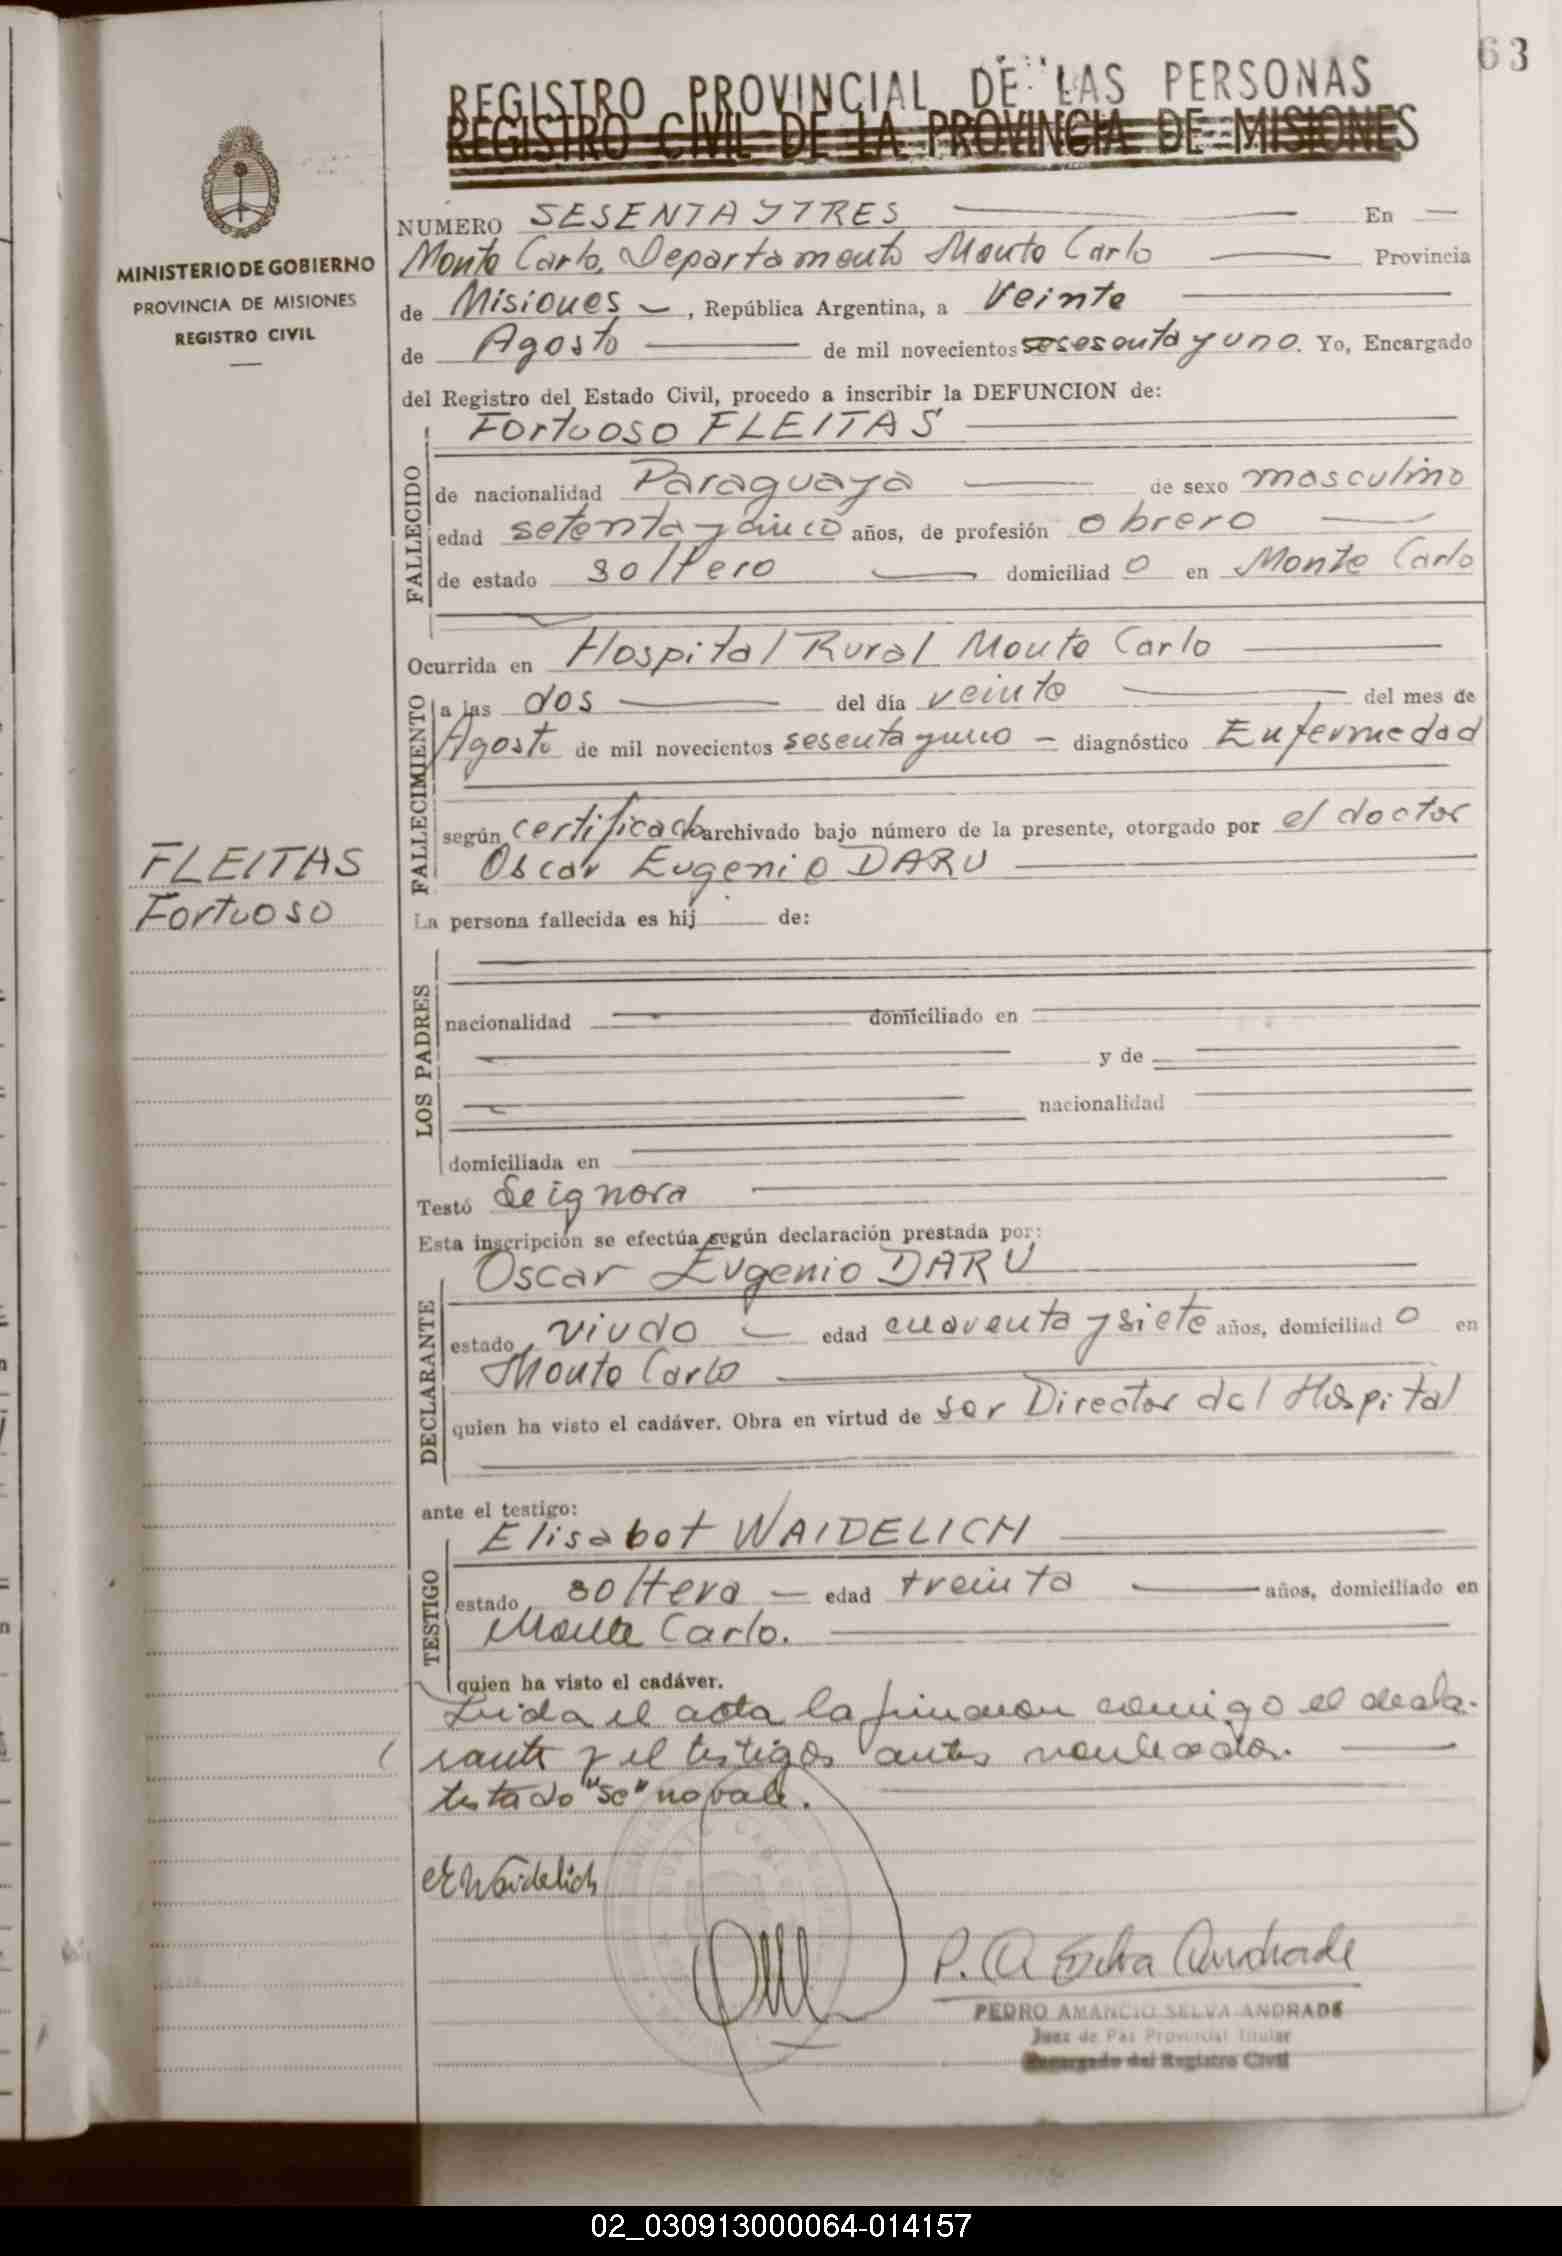 63
REGISTRO PROVINCIAL DE LAS PERSONAS
REGISTRO CIVIL DE LA PROVINCIA DE MISIONES
MINISTERIO DE GOBIERNO
PROVINCIA DE MISIONES
REGISTRO CIVIL
NUMERO SESENTA Y TRES En
Monte Carlo, Departamento Monte Carlo Provincia
de Misiones, República Argentina, a Veinte
de Agosto de mil novecientos se sesenta y uno. Yo, Encargado
del Registro del Estado Civil, procedo a inscribir la DEFUNCION de:
FALLECIDO
Fortuoso FLEITAS
de nacionalidad Paraguaya de sexo masculino
edad setenta y cinco años, de profesión obrero
de estado soltero domiciliad o en Monte Carlo
FALLECIMIENTO
Ocurrida en Hospital Rural Monte Carlo
a las dos del día veinte del mes de
Agosto de mil novecientos sesenta y uno diagnóstico Enfermedad
según certificado archivado bajo número de la presente, otorgado por el doctor
Oscar Eugenio DARU
FLEITAS
Fortuoso
La persona fallecida es hij de:
LOS PADRES
nacionalidad domiciliado en
y de
nacionalidad
domiciliada en
Testó Se ignora
Esta inscripción se efectúa según declaración prestada por:
DECLARANTE
Oscar Eugenio DARU
estado viudo edad cuarenta y siete años, domiciliad o en
Monte Carlo
quien ha visto el cadáver. Obra en virtud de ser Director del Hospital
ante el testigo:
TESTIGO
Elisabet WAIDELICH
estado soltera edad treinta años, domiciliado en
Monte Carlo.
quien ha visto el cadáver.
Leida el acta la firmaron comigo el decla-
rante y el testigos antes
testado "se" no vale.
E Waidelich
P. A Selva Andrade
PEDRO AMANCIO SELVA ANDRADE
Juez de Paz Provincial Titular
Encargado del Registro Civil
02_030913000064-014157